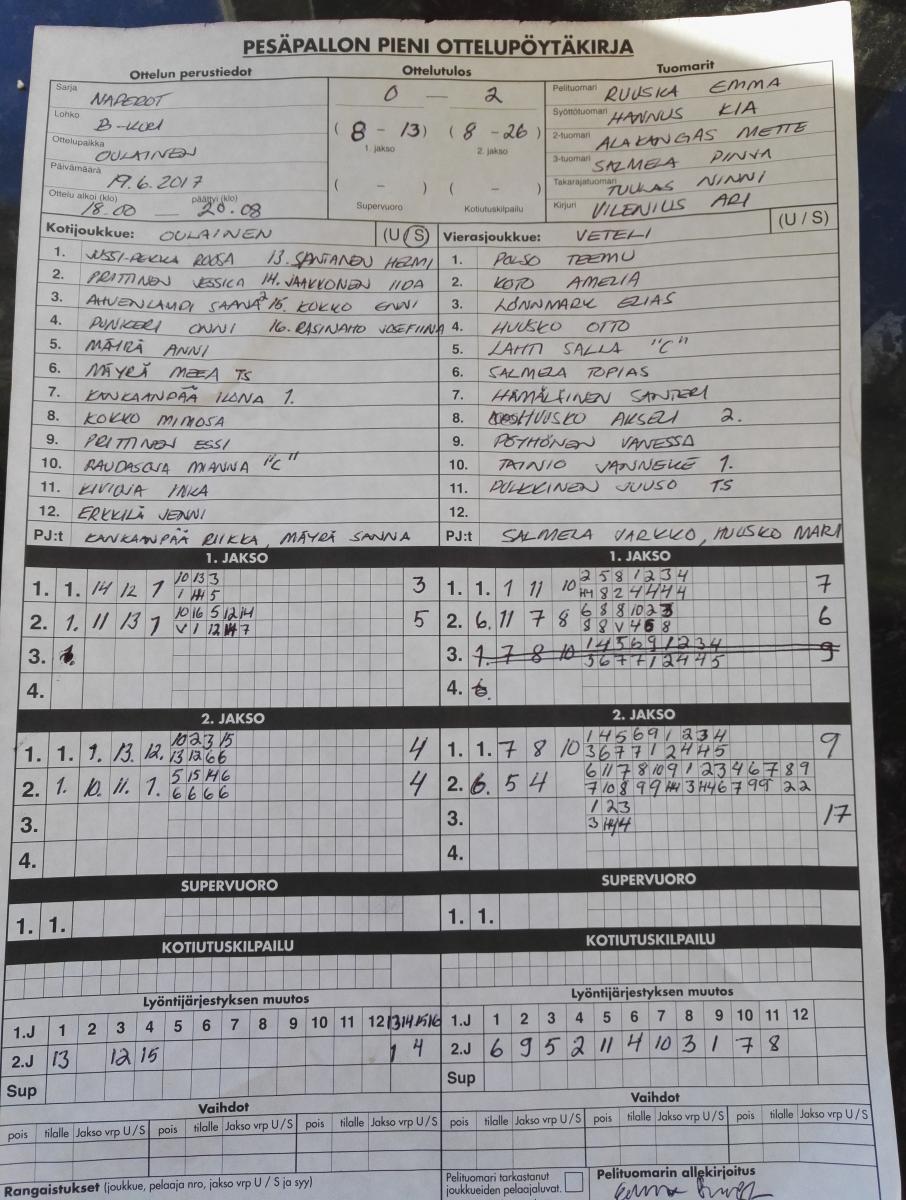 PESÄPALLON PIENI OTTELUPÖYTÄKIRJA
Ottelun perustiedot
Sarja NAPEROT
Lohko
Ottelupaikka OULAINEN
Päivämäärä 19.6.2017
Ottelu alkoi (klo) 18.00 päättyi (klo) 20.08
Ottelutulos
0 — 2
(8 - 13) (8 - 26)
1. jakso 2. jakso
( - ) ( - )
Supervuoro Kotiutuskilpailu
Tuomarit
Pelituomari RUUSKA EMMA
Syöttötuomari HANNUS KIA
2-tuomari ALAKANGAS METTE
3-tuomari SALMELA PINJA
Takarajatuomari TUUKAS NINNI
Kirjuri VILENIUS ARI
Kotijoukkue: OULAINEN (U / S)
1. JUSSI-PEKKA ROOSA 13. SANTANEN HELMI
2. PRITTINEN JESSICA 14. JAAKKONEN IIDA
3. AHVENLAMPI SAANA 15. KOKKO ENNI
4. PUNKERI ONNI 16. RASINAHO JOSEFIINA
5. MÄYRÄ ANNI
6. MÄYRÄ MEEA TS
7. KANKAANPÄÄ ILONA 1.
8. KOKKO MIMOSA
9. PRITTINEN ESSI
10. RAUDASOJA MIANNA "C"
11. KIVIOJA INKA
12. ERKKILÄ JENNI
PJ:t KANKAANPÄÄ RIIKKA, MÄYRÄ SANNA
Vierasjoukkue: VETELI (U / S)
1. POLSO TEEMU
2. KOTO AMELIA
3. LÖNNMARK ELIAS
4. HUUSKO OTTO
5. LAHTI SALLA "C"
6. SALMELA TOPIAS
7. HÄMÄLÄINEN SANTERI
8. HUUSKO AKSELI 2.
9. PÖYHÖNEN VANESSA
10. TAINIO JANNEKE 1.
11. PULKKINEN JUUSO TS
12.
PJ:t SALMELA JARKKO, HUUSKO MARI
1. JAKSO
1. 1. 14 12 7 10 13 3 3
2. 1. 11 13 7 10 16 5 12 14 5
3.
4.
1. JAKSO
1. 1. 1 11 10 2 5 8 1 2 3 4 7
2. 6. 11 7 8 6 8 8 10 2 3 6
3. 1. 7 8 10 1 4 5 6 9 1 2 3 4 9
3 6 7 7 1 2 4 4 5
4.
2. JAKSO
1. 1. 1. 13. 12. 10 2 3 15 4
13 12 6 6
2. 1. 10. 11. 1. 5 15 14 6 4
6 6 6 6
3.
4.
2. JAKSO
1. 1. 7 8 10 1 4 5 6 9 1 2 3 4 9
3 6 7 7 1 2 4 4 5
2. 6. 5 4 6 11 7 8 10 9 1 2 3 4 6 7 8 9
3. 1 2 3 17
4.
SUPERVUORO
1. 1.
SUPERVUORO
1. 1.
KOTIUTUSKILPAILU
KOTIUTUSKILPAILU
Lyöntijärjestyksen muutos
1.J 1 2 3 4 5 6 7 8 9 10 11 12 13 14 15 16
2.J 13 12 15 1 4
Sup
Lyöntijärjestyksen muutos
1.J 1 2 3 4 5 6 7 8 9 10 11 12
2.J 6 9 5 2 11 4 10 3 1 7 8
Sup
Vaihdot
pois tilalle Jakso vrp U / S pois tilalle Jakso vrp U / S pois tilalle Jakso vrp U / S
Vaihdot
pois tilalle Jakso vrp U / S pois tilalle Jakso vrp U / S pois tilalle Jakso vrp U / S
Rangaistukset (joukkue, pelaaja nro, jakso vrp U / S ja syy)
Pelituomari tarkastanut
joukkueiden pelaajaluvat.
Pelituomarin allekirjoitus